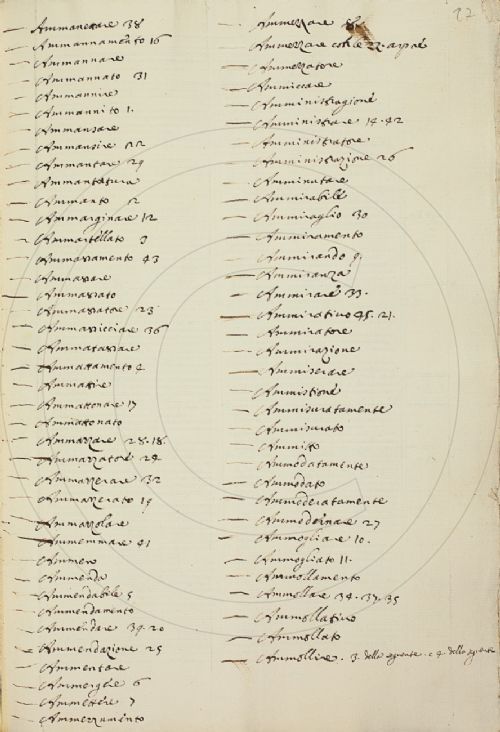 Ammanettare 38
Ammannamento 16
Ammannare
Ammannato 31
Ammannire
Ammannito 1.
Ammansare
Ammansire 22
Ammantare 29
Ammantatura
Ammanto 2
Ammarginare 12
Ammartellato 3
Ammassamento 43
Ammassare
Ammassato
Ammassatore 23
Ammassicciare 36
Ammatassare
Ammattamento 4
Ammattire
Ammattonare 17
Ammattonato
Ammazzare 28. 18.
Ammazzatore 24
Ammazzerare 32
Ammazzerato 19
Ammazzolare
Ammemmare 41
Ammen
Ammenda
Ammendabile 5
Ammendamento
Ammendare 39. 20
Ammendazione 25
Ammentare
Ammettere 7
Ammezzamento
27
Ammezzare
Ammezzare
Ammezzatore
Ammiccare
Amministragione
Amministrare 14. 42
Amministratore
Amministrazione 26
Amminutare
Ammirabile
Ammiraglio 30
Ammiramento
Ammirando 9.
Ammiranza
Ammirare 33.
Ammirativo 45. 21.
Ammiratore
Ammirazione
Ammiserare
Ammistione
Ammisuratamente
Ammisurato
Ammitto
Ammodatamente
Ammodato
Ammoderatamente
Ammodernare 27
Ammogliare 10.
Ammogliato 11.
Ammollamento
Ammollare 34. 37. 35
Ammollativo
Ammollato
Ammollire. 3. della seguente. e 4. della seguente